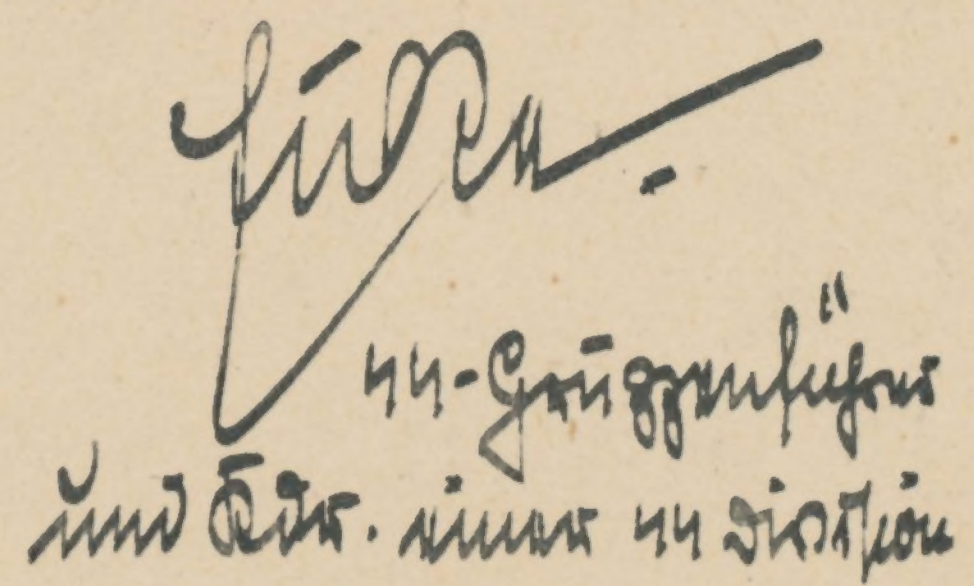 Eicke.
SS-Gruppenführer
und Kdr. einer SS Division